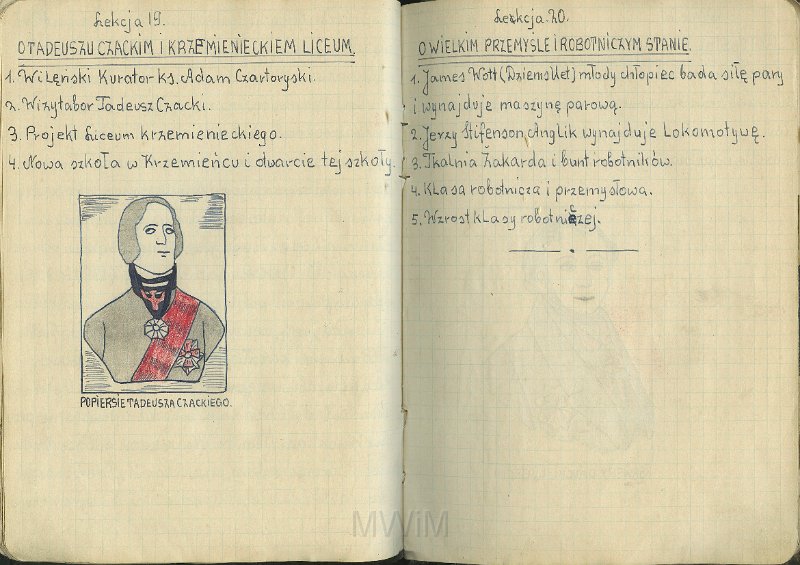 Lekcja 19.
O TADEUSZU CZACKIM I KRZEMIENIECKIEM LICEUM.
1. Wileński Kurator ks. Adam Czartoryski.
2. Wizytabor Tadeusz Czacki.
3. Projekt Liceum krzemienieckiego.
4. Nowa szkoła w Krzemieńcu i otwarcie tej szkoły.
POPIERSIE TADEUSZA CZACKIEGO.
Lekcja 20.
O WIELKIM PRZEMYŚLE I ROBOTNICZYM STANIE.
1. James Wott (Dziems Uet) młody chłopiec bada siłę pary
i wynajduje maszynę parową.
2. Jerzy Stifenson, Anglik wynajduje Lokomotywę.
3. Tkalnia Żakarda i bunt robotników.
4. Klasa robotnicza i przemysłowa.
5. Wzrost klasy robotniczej.
MWiM